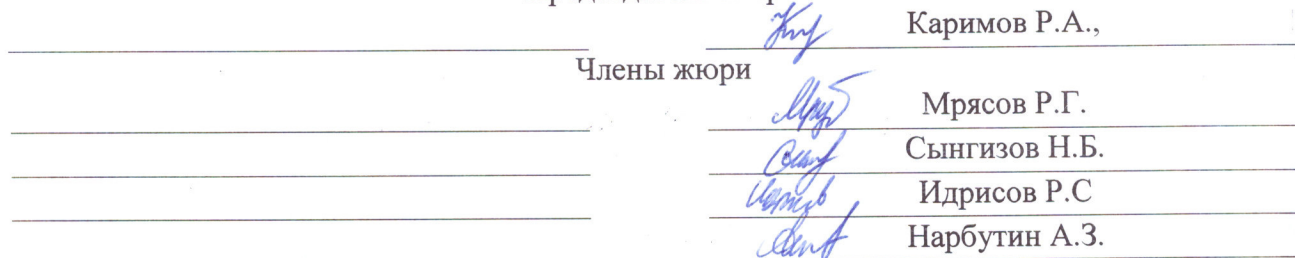 Каримов Р.А.,
Члены жюри
Мрясов Р.Г.
Сынгизов Н.Б.
Идрисов Р.С
Нарбутин А.З.